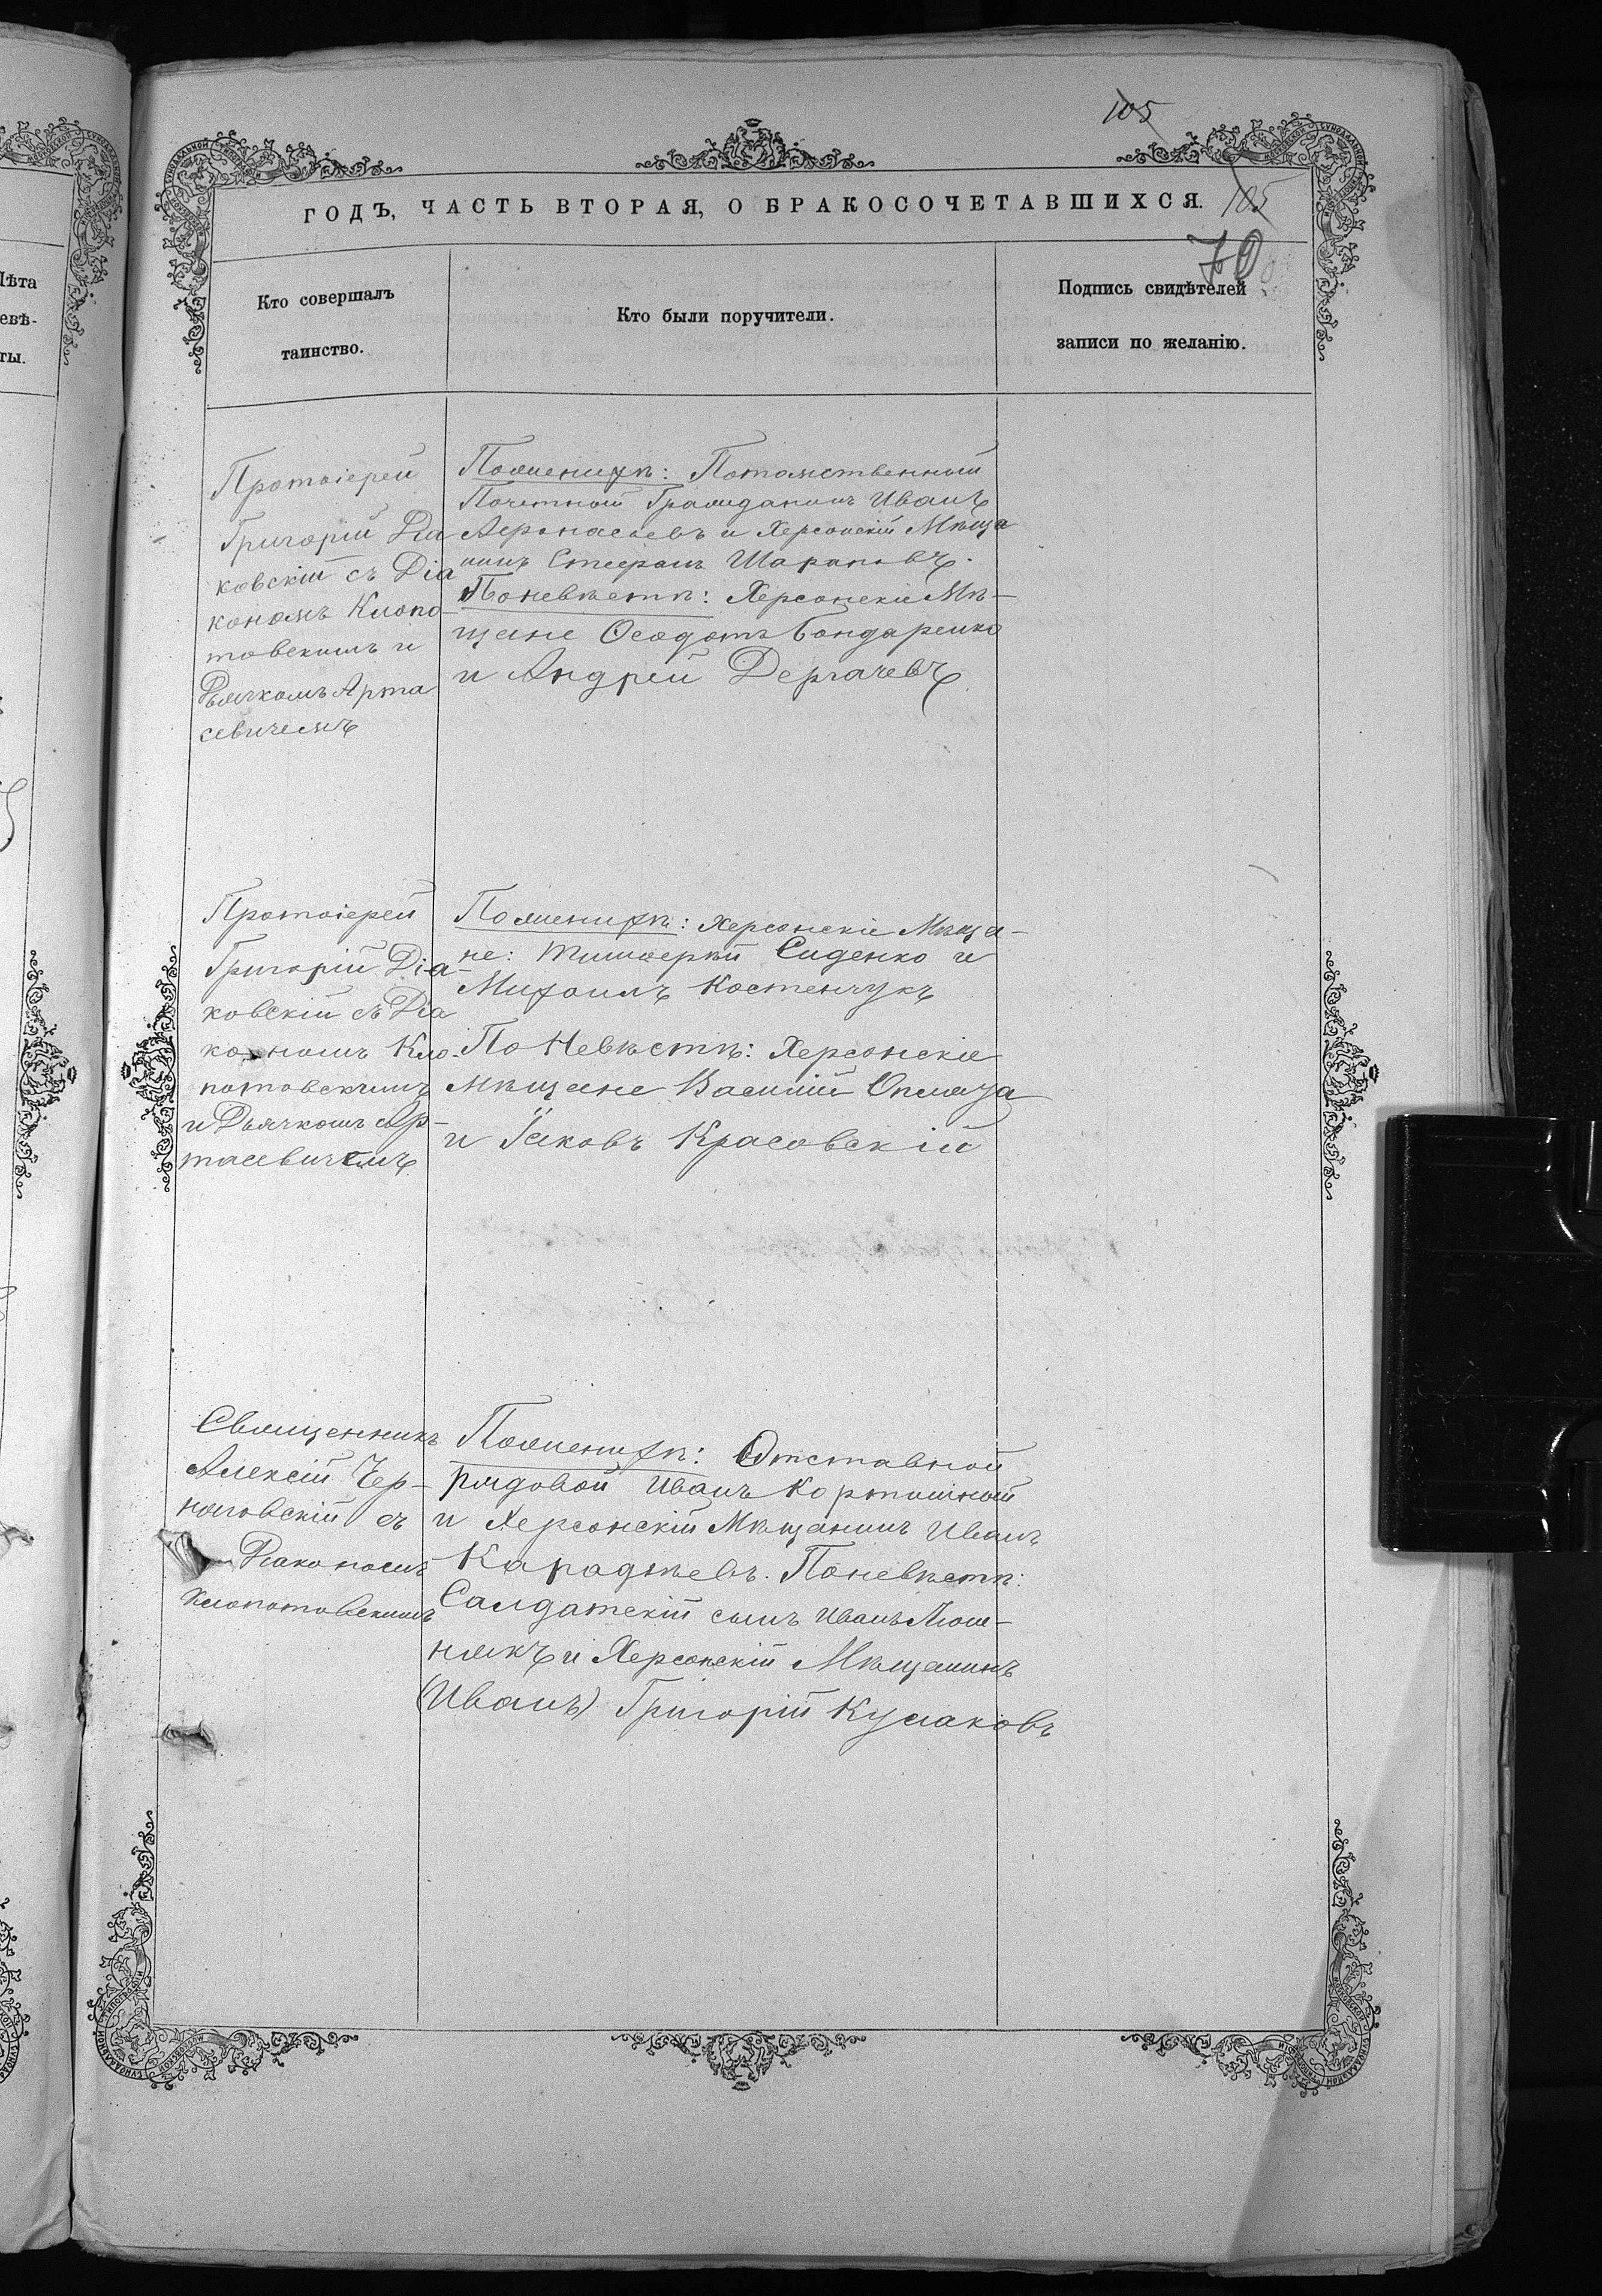 105
ГОДЪ, ЧАСТЬ ВТОРАЯ, О БРАКОСОЧЕТАВШИХСЯ.
105
70
Кто совершалъ
таинство.
Кто были поручители.
Подпись свидѣтелей
записи по желанію.
Лѣта
евѣ-
ты.
Протоіерей
Григорій Діа
ковскій съ Діа
кономъ Клопо-
товскимъ и
Дьячкомъ Арта
севичемъ
Поженихѣ: Потомственный
Почетный Гражданинъ Иванъ
Афонасьевъ и Херсонскій Мѣща
нинъ Стефанъ Шараповъ.
Поневѣстѣ: Херсонскіе Мѣ-
щане Ѳеодотъ Бондаренко
и Андрей Дергачевъ
Протоіерей
Григорій Діа-
ковскій съ Діа
кономъ Кло-
потовскимъ
и Дьячкомъ Ар-
тасевичемъ
Поженихѣ: Херсонскіе Мѣща-
не: Тимоѳей Сиденко и
Михаилъ Костенчукъ
По Невѣстѣ: Херсонскіе
мѣщане Василій
и Іаковъ Красовскій
Священникъ
Алексій Чер-
ноговскій съ
Діакономъ
Клопотовскимъ
Поженихѣ: Отставной
рядовой Иванъ
и Херсонскій Мѣщанинъ Иванъ
Караджевъ. Поневѣстѣ:
Салдатскій сынъ Иванъ Люш-
някъ и Херсонскій Мѣщанинъ
(Иванъ) Григорій Кулаковъ